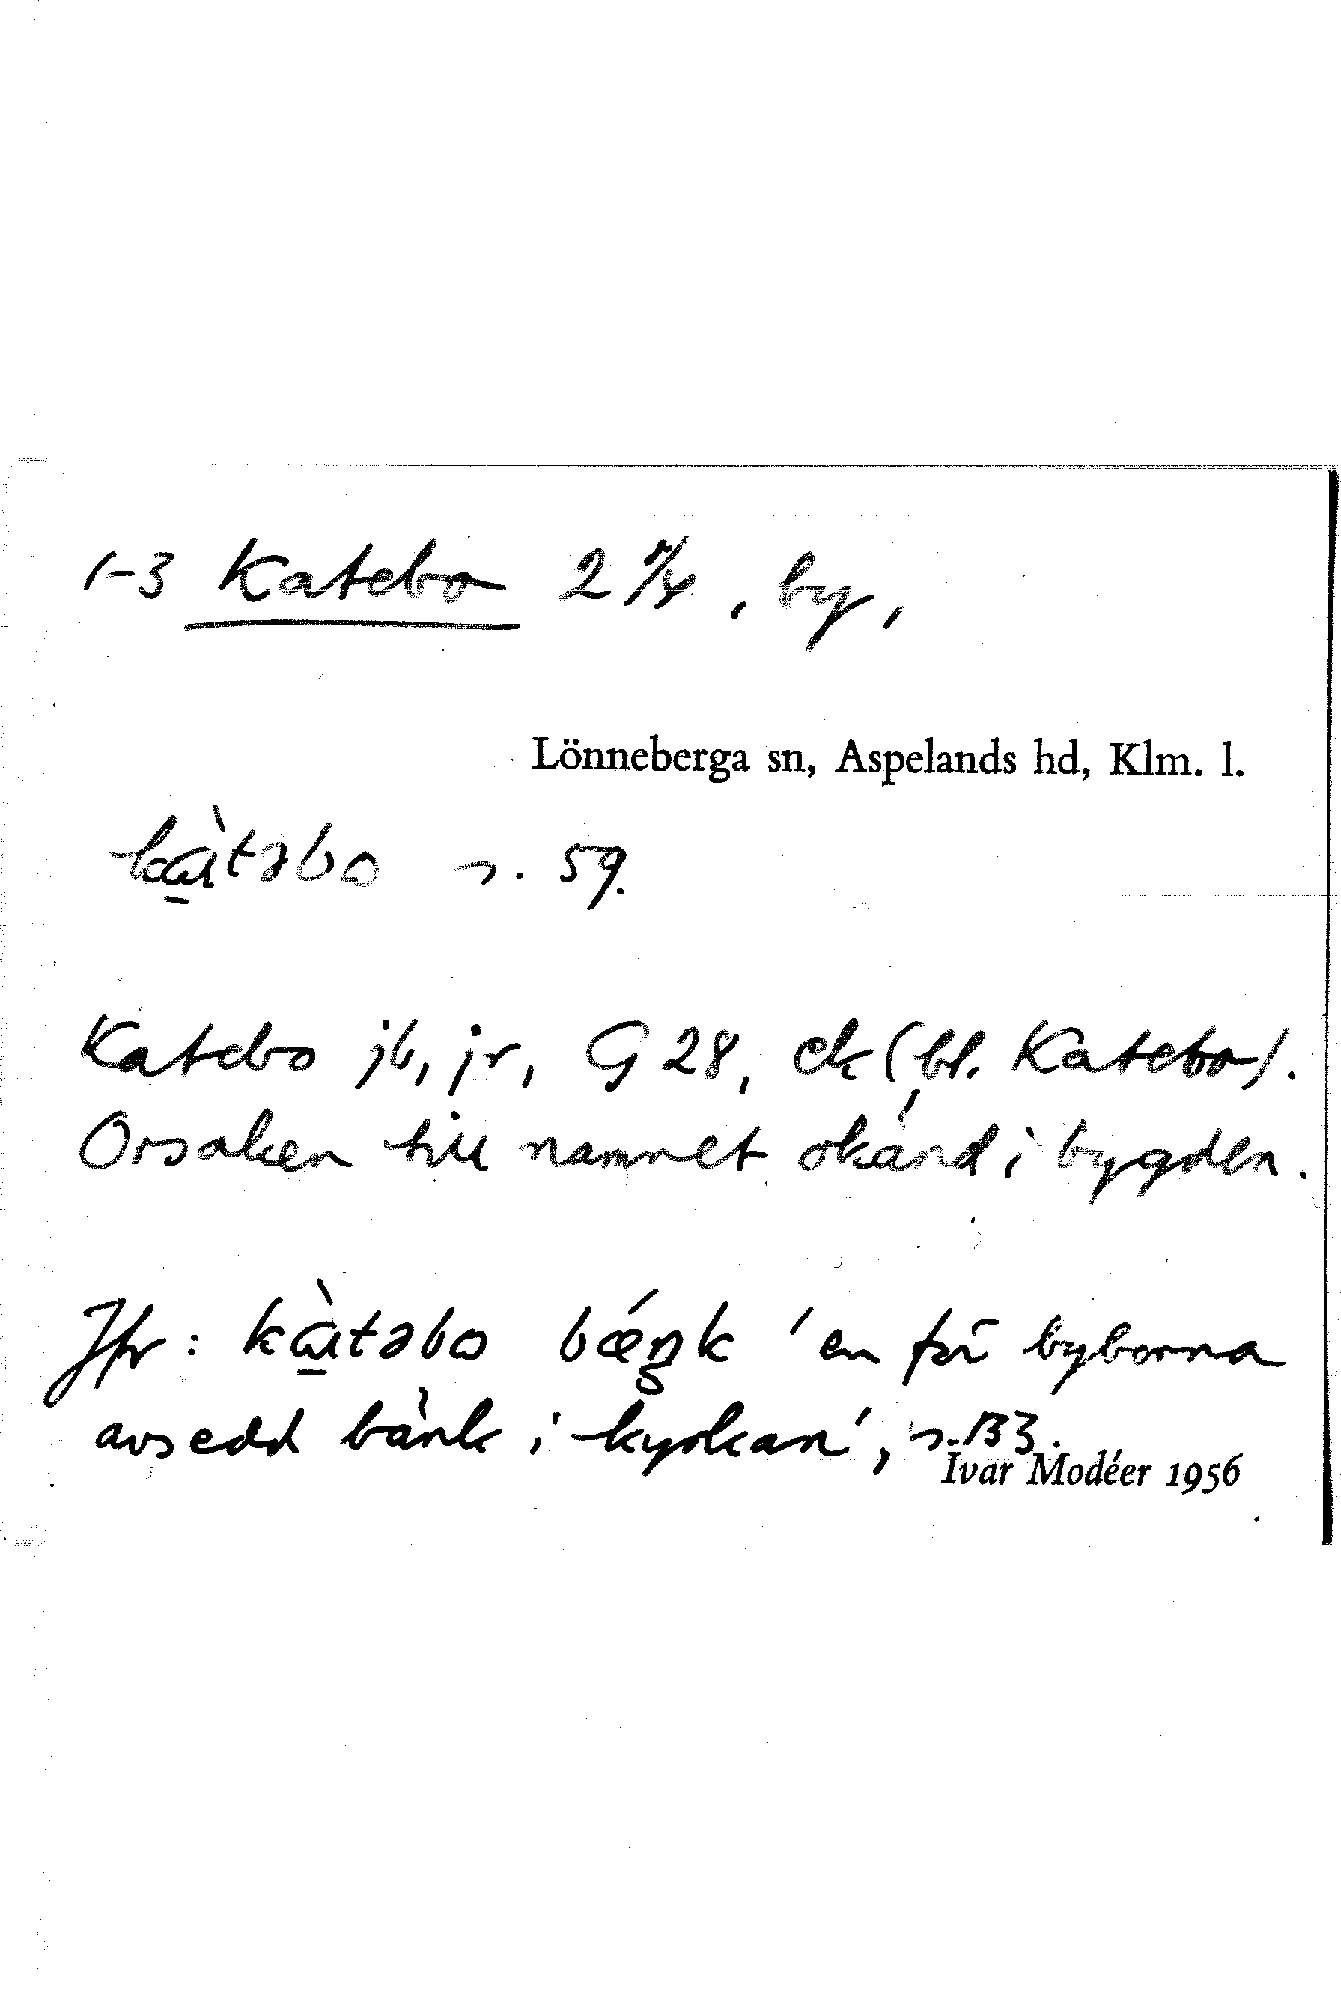 1-3 Katebo 2 7/8, by,
Lönneberga sn, Aspelands hd, Klm. l.
kàtəbo s. 59.
Katebo jb, jr, G 28, ek (bl. Katebo).
Orsaken till namnet okänd i bygden.
Jfr: kàtəbo bǽŋk 'en för byborna
avsedd bänk i kyrkan', s. 133.
Ivar Modéer 1956